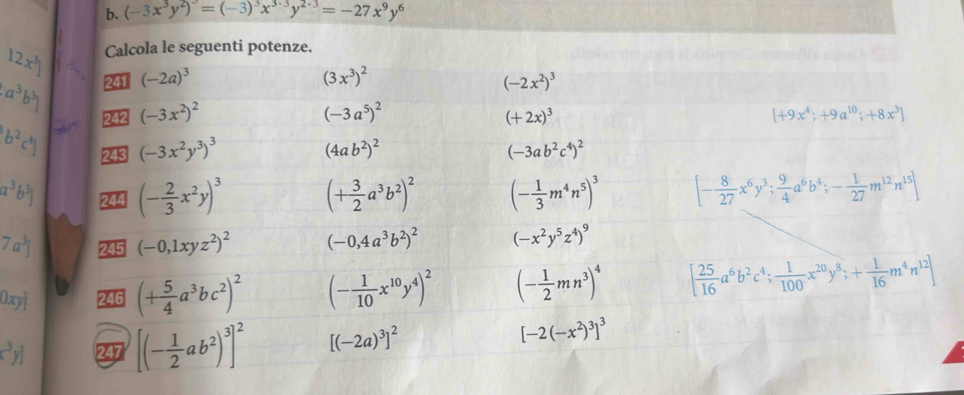 b. (−3x³y²)³ = (−3)³x³·³y²·³ = −27x⁹y⁶
Calcola le seguenti potenze.
12x³]
241 (−2a)³ (3x³)² (−2x²)³
a³b³]
242 (−3x²)² (−3a⁵)² (+2x)³ [+9x⁴; +9a¹⁰; +8x³]
b²c⁴]
243 (−3x²y³)³ (4ab²)² (−3ab²c⁴)²
a³b³]
244 (−2/3 x²y)³ (+3/2 a³b²)² (−1/3 m⁴n⁵)³ [−8/27 x⁶y³; 9/4 a⁶b⁴; −1/27 m¹²n¹⁵]
7a³]
245 (−0,1xyz²)² (−0,4a³b²)² (−x²y⁵z⁴)⁹
0xy]
246 (+5/4 a³bc²)² (−1/10 x¹⁰y⁴)² (−1/2 mn³)⁴ [25/16 a⁶b²c⁴; 1/100 x²⁰y⁸; +1/16 m⁴n¹²]
x³y]
247 [(−1/2 ab²)³]² [(−2a)³]² [−2(−x²)³]³